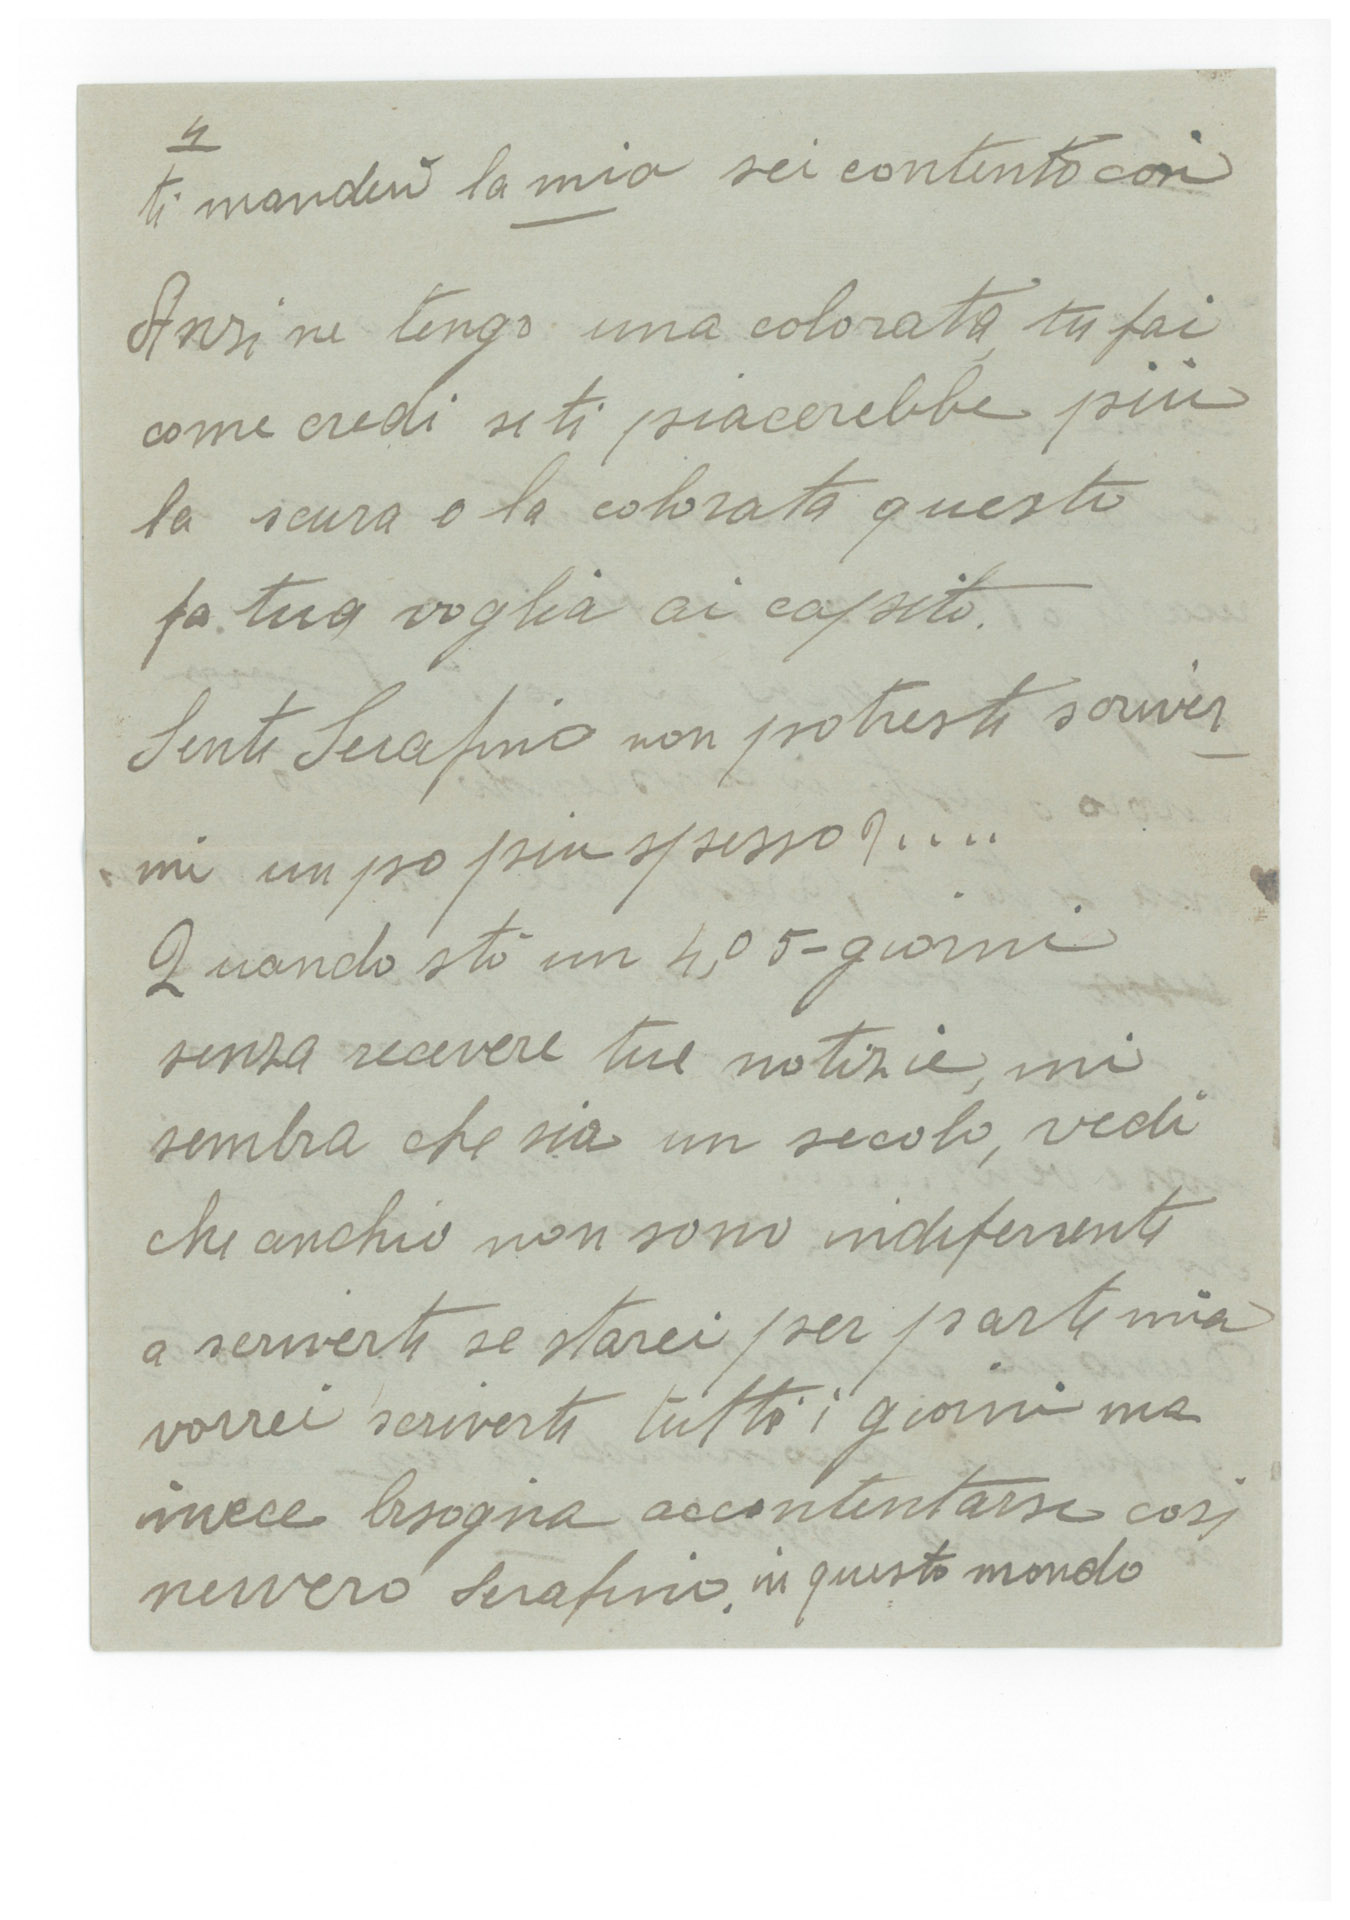 4
ti manderò la mia sei contento così
Anzi ne tengo una colorata, tu fai
come credi se ti piacerebbe più
la scura o la colorata questo
fa tua voglia ai capito.
Senti Serafino non potresti scriver
mi un po piu spesso?....
Quando stò un 4, o 5 - giorni
senza recevere tue notizie, mi
sembra che sia un secolo, vedi
che anchio non sono indeferente
a scriverti se starei per parte mia
vorrei scriverti tutti i giorni ma
invece bisogna accontentarsi cosi
nevvero Serafino, in questo mondo